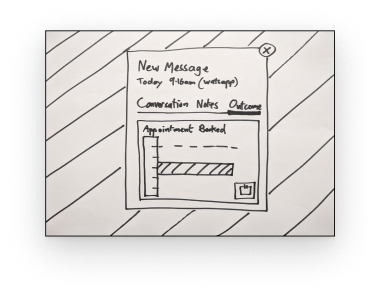 New Message
Today 9:16am (watsapp)
Conversation Notes Outcome
Appointment Booked